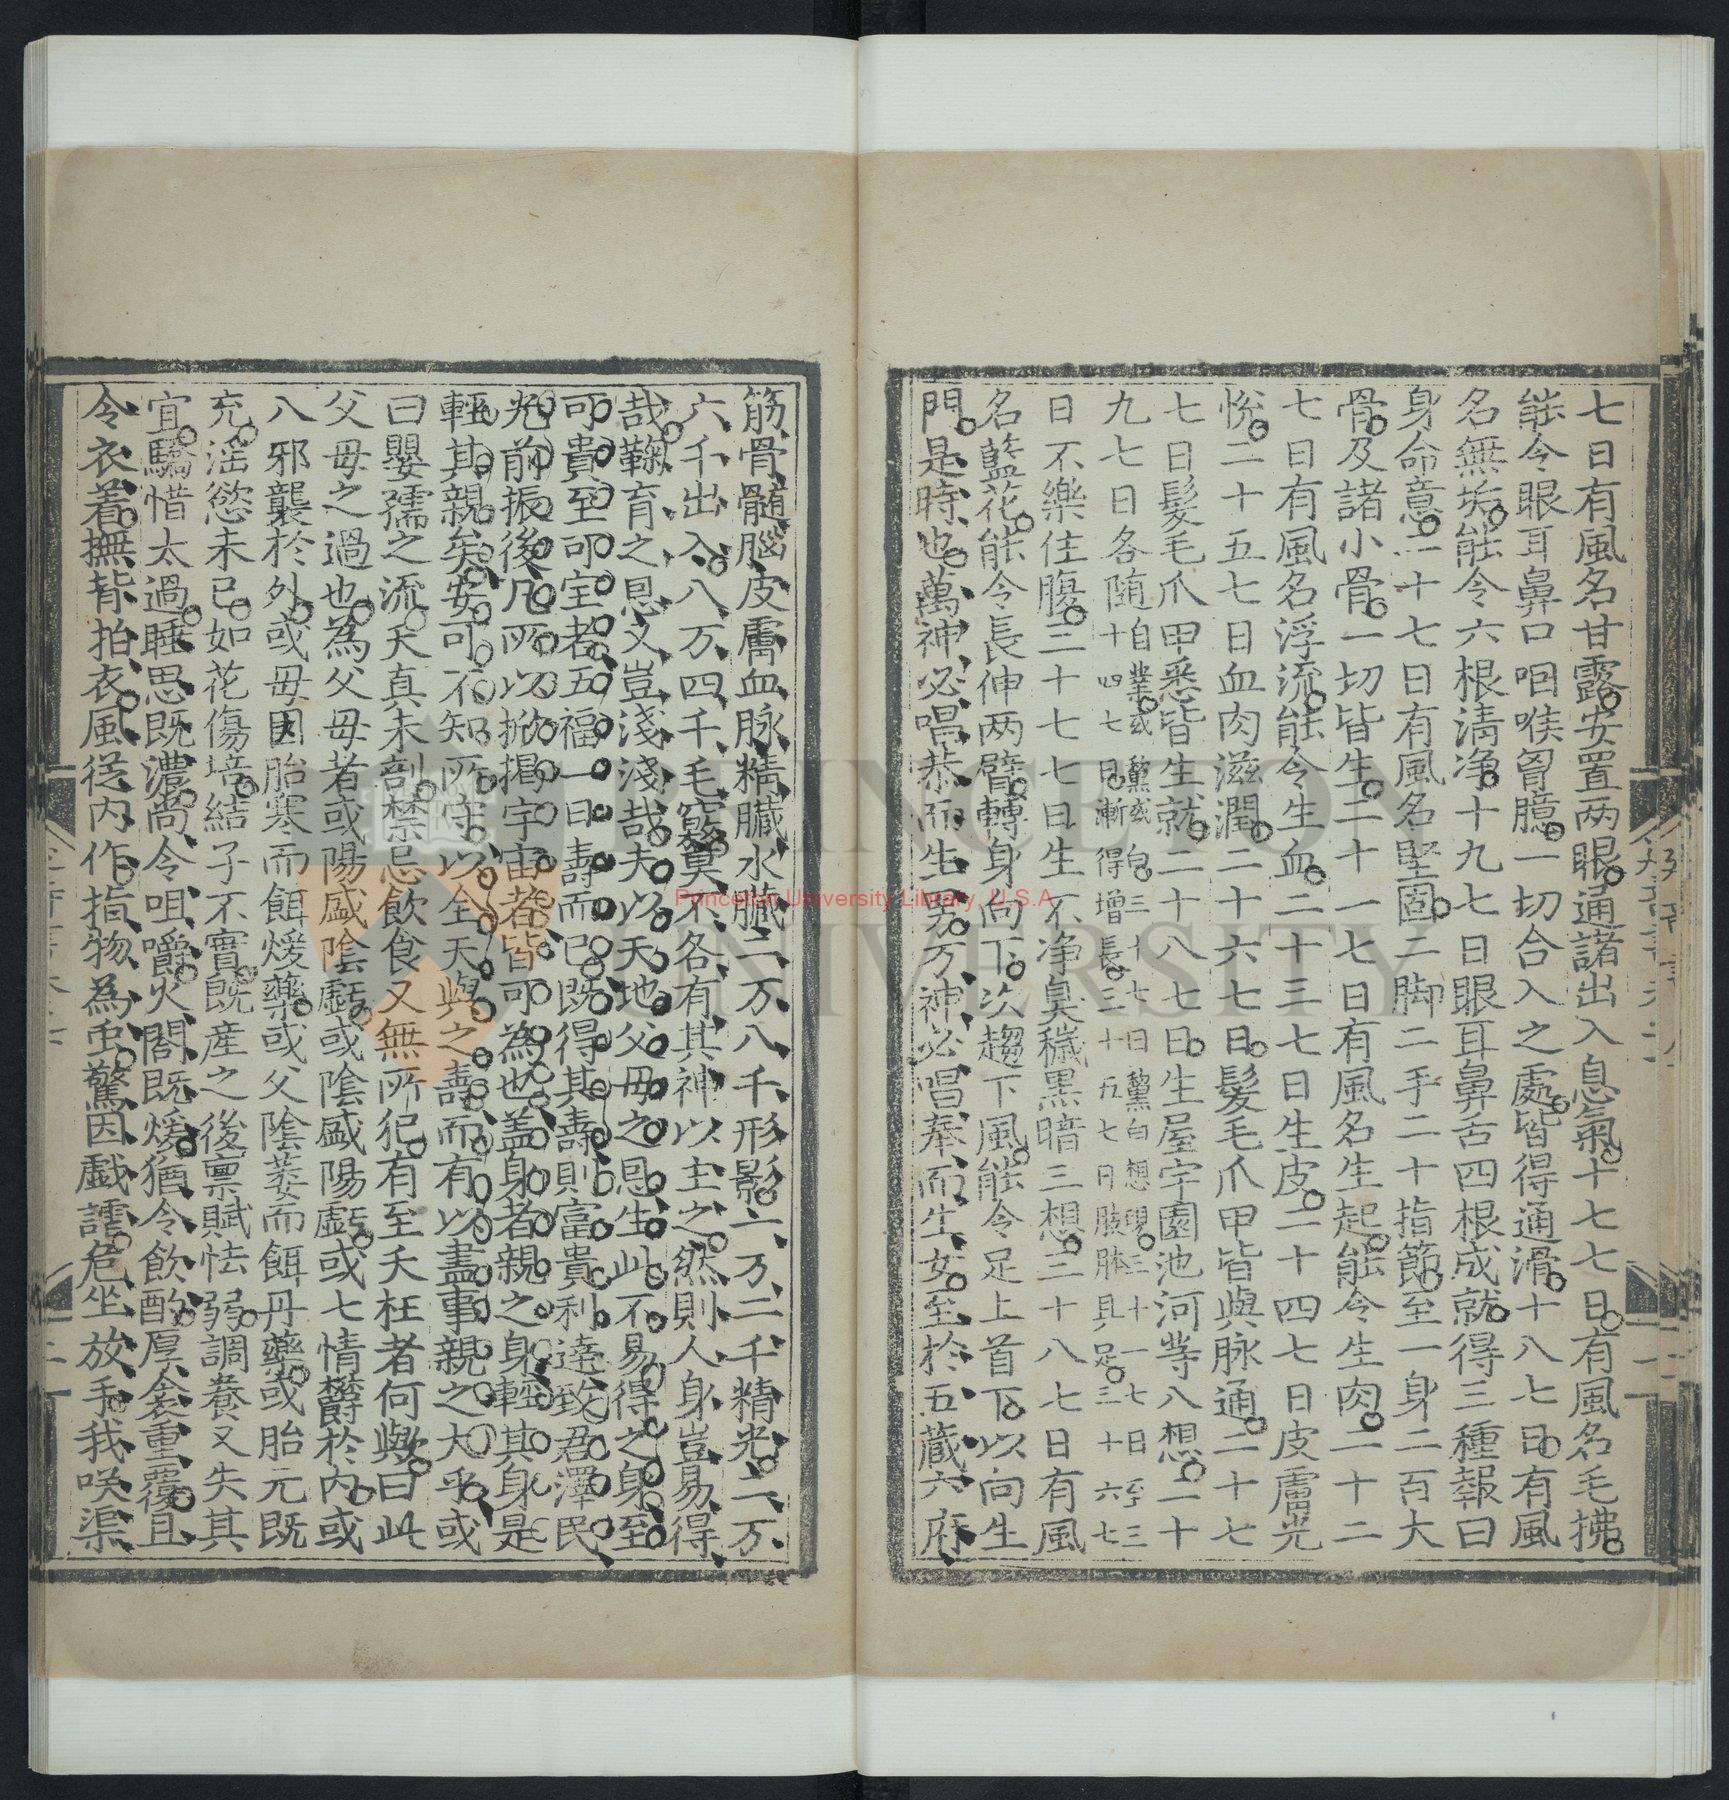 七日有風名甘露安置两眼通諸出入息氣十七七日有風名毛拂
能令眼耳鼻口咽喉胷臆一切合入之處皆得通滑十八七日有風
名無垢能令六根清净十九七日眼耳鼻舌四根成就得三種報曰
身命意二十七日有風名堅固二脚二手二十指節至一身二百大
骨及諸小骨一切皆生二十一七日有風名生起能令生肉二十二
七日有風名浮流能令生血二十三七日生皮二十四七日皮膚光
悅二十五七日血肉滋潤二十六七日髮毛爪甲皆與脉通二十七
七日髮毛爪甲悉皆生就二十八七日生屋宇園池河等八想二十
九七日各随自業或黧或白三十七日黧白想現三十一七日至三
十四七日漸得增長三十五七日肢體具足三十六七
日不樂住腹三十七七日生不净臭穢黑暗三想三十八七日有風
名藍花能令長伸两臂轉身向下次趨下風能令足上首下以向生
門是時也萬神必唱恭而生男万神必唱奉而生女至於五蔵六府
筋骨髓腦皮膚血脉精臓水臓二万八千形影一万二千精光三万
六千出入八万四千毛竅莫不各有其神以主之然則人身豈易得
哉鞠育之恩又豈淺淺哉夫以天地父母之恩生此不易得之身至
可貴至可宝者五福一曰壽而已既得其壽則富貴利達致君澤民
光前振後凡所以掀揭宇宙者皆可為也盖身者親之身輕其身是
輕其親矣安可不知所守以全天與之壽而有以盡事親之大乎或
曰嬰孺之流天真未剖禁忌飲食又無所犯有至夭枉者何與曰此
父母之過也為父母者或陽盛隂虧或隂盛陽虧或七情欝於内或
八邪襲於外或母因胎寒而餌煖藥或父隂萎而餌丹藥或胎元既
充淫慾未已如花傷培結子不實既産之後禀賦怯弱調養又失其
宜驕惜太過睡思既濃尚令咀嚼火閤既煖猶令飲酌厚衾重覆且
令衣着撫背拍衣風從内作指物為虫驚因戯謔危坐放手我咲渠
Princeton University Library, U.S.A.
PRINCETON
UNIVERSITY